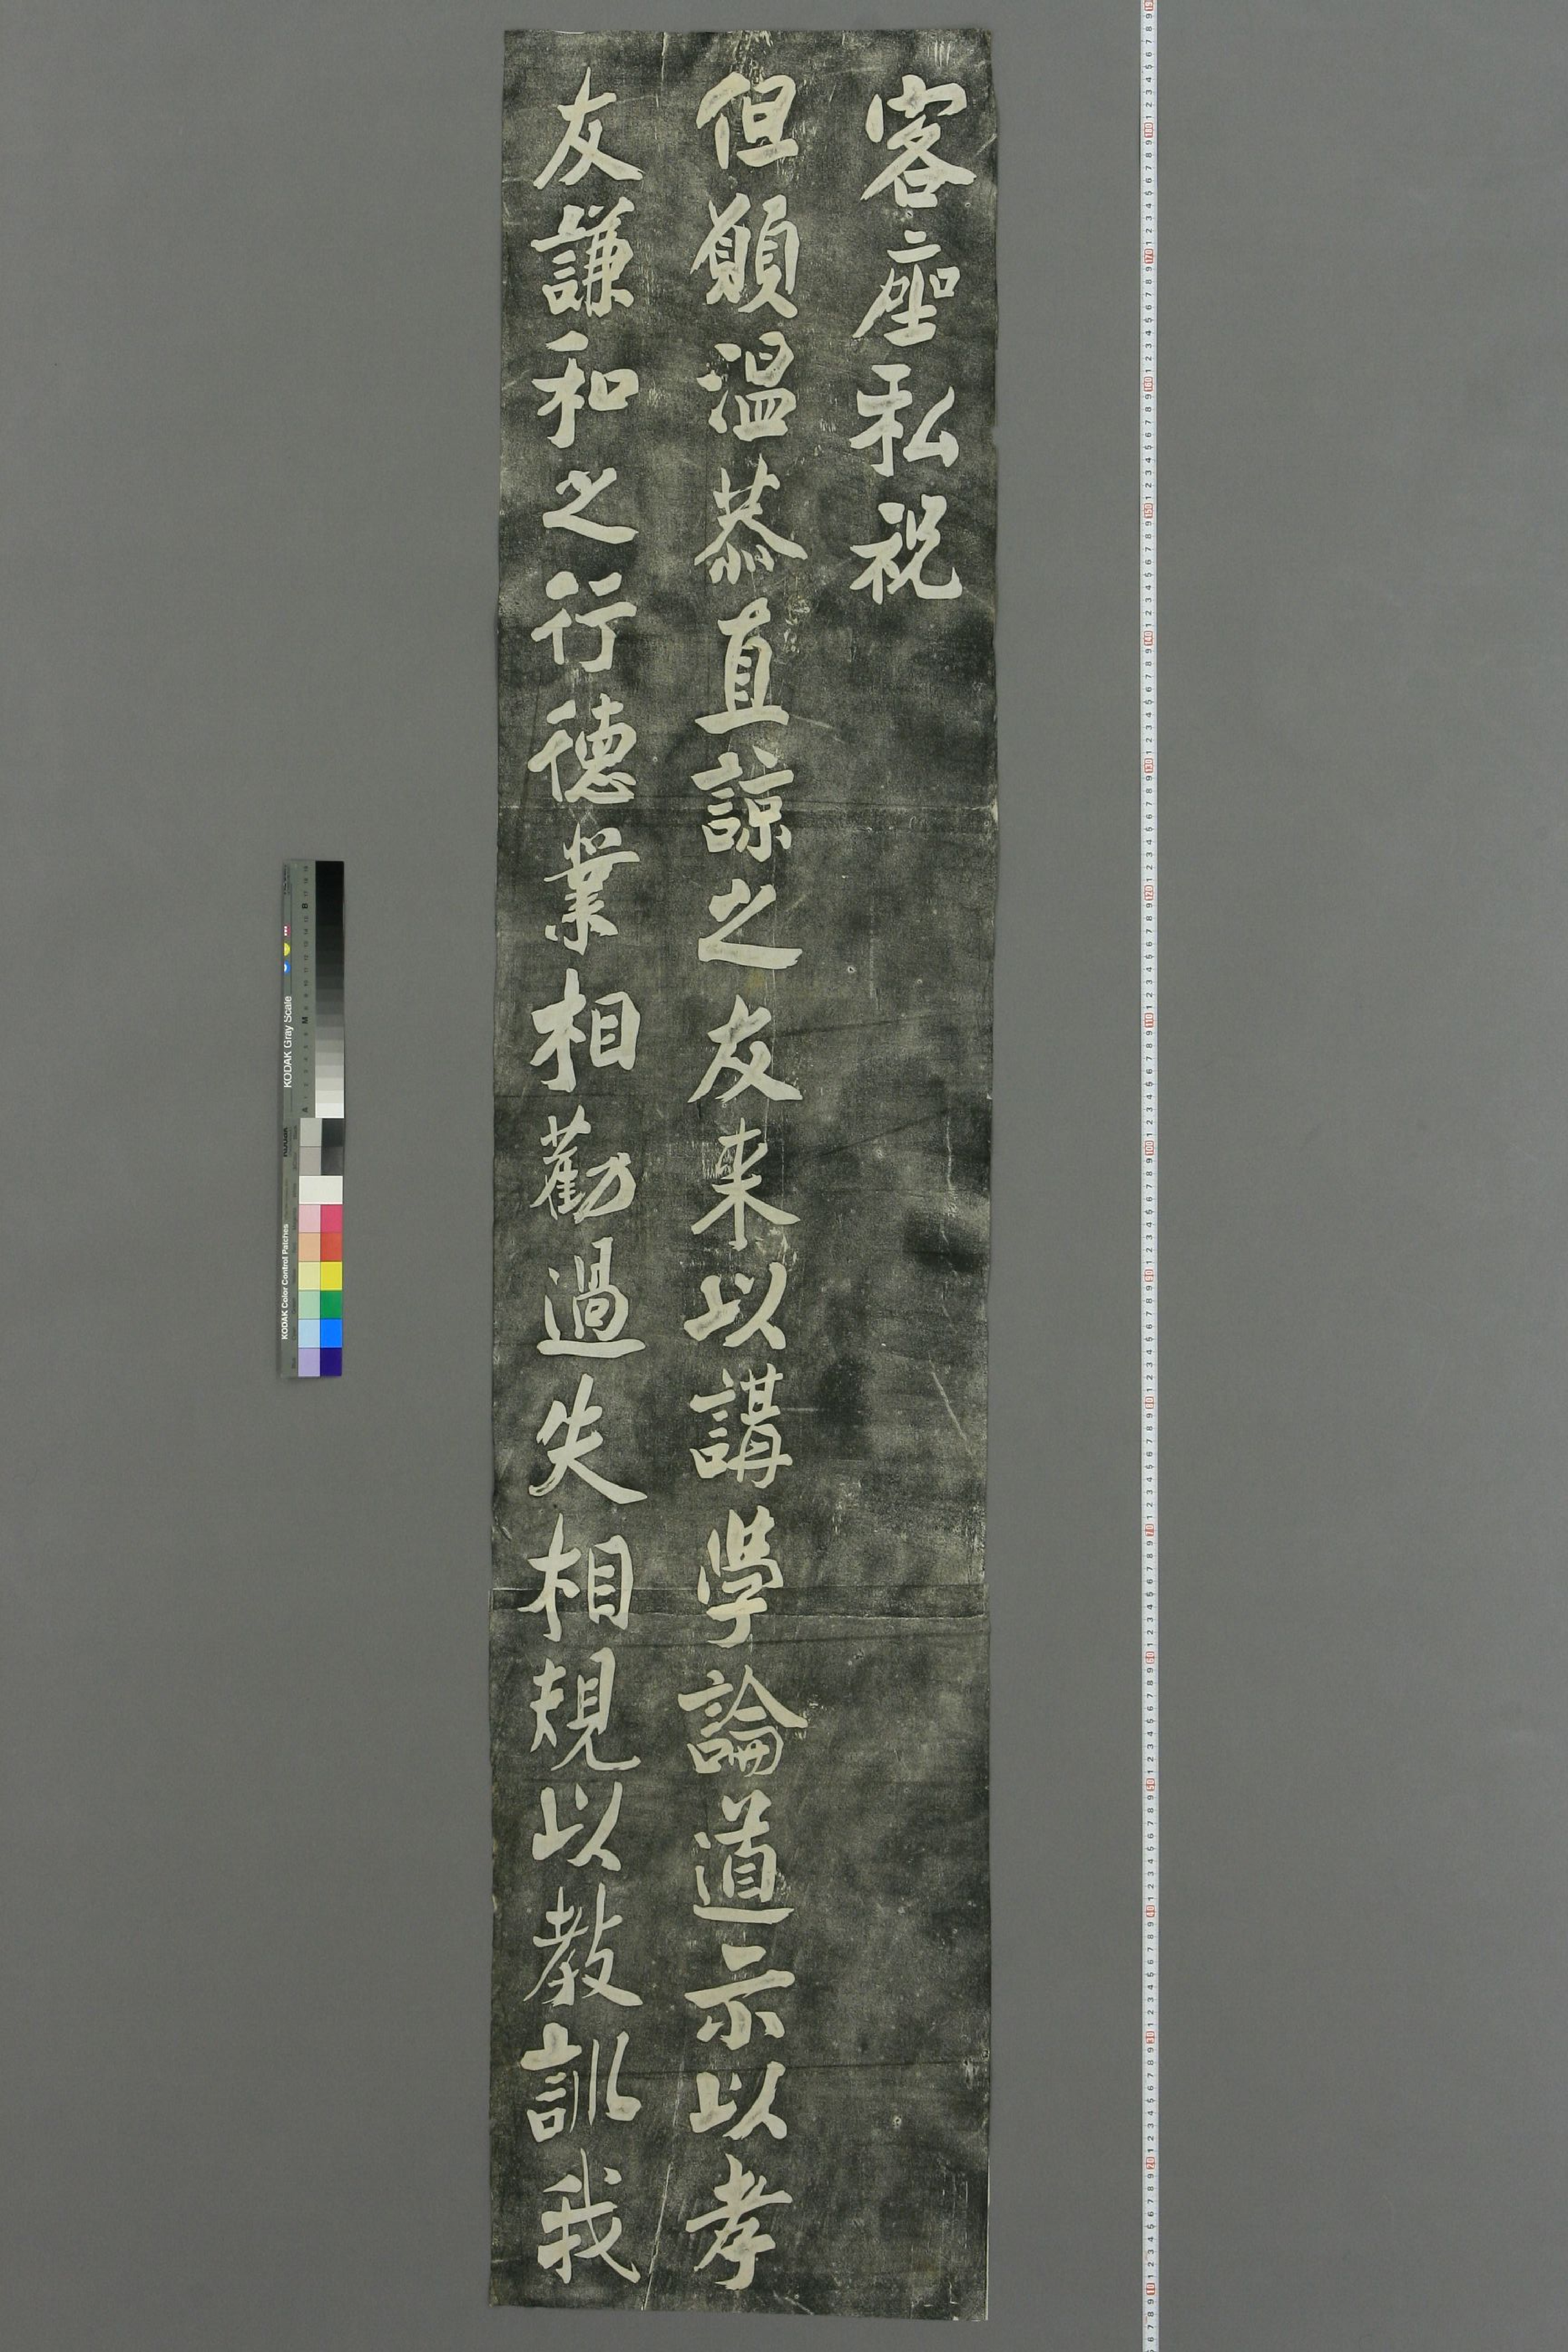 客座私祝
但願温恭直諒之友来以講学論道示以孝
友謙和之行德業相勸過失相規以教訓我
KODAK Gray Scale
KODAK Color Control Patches